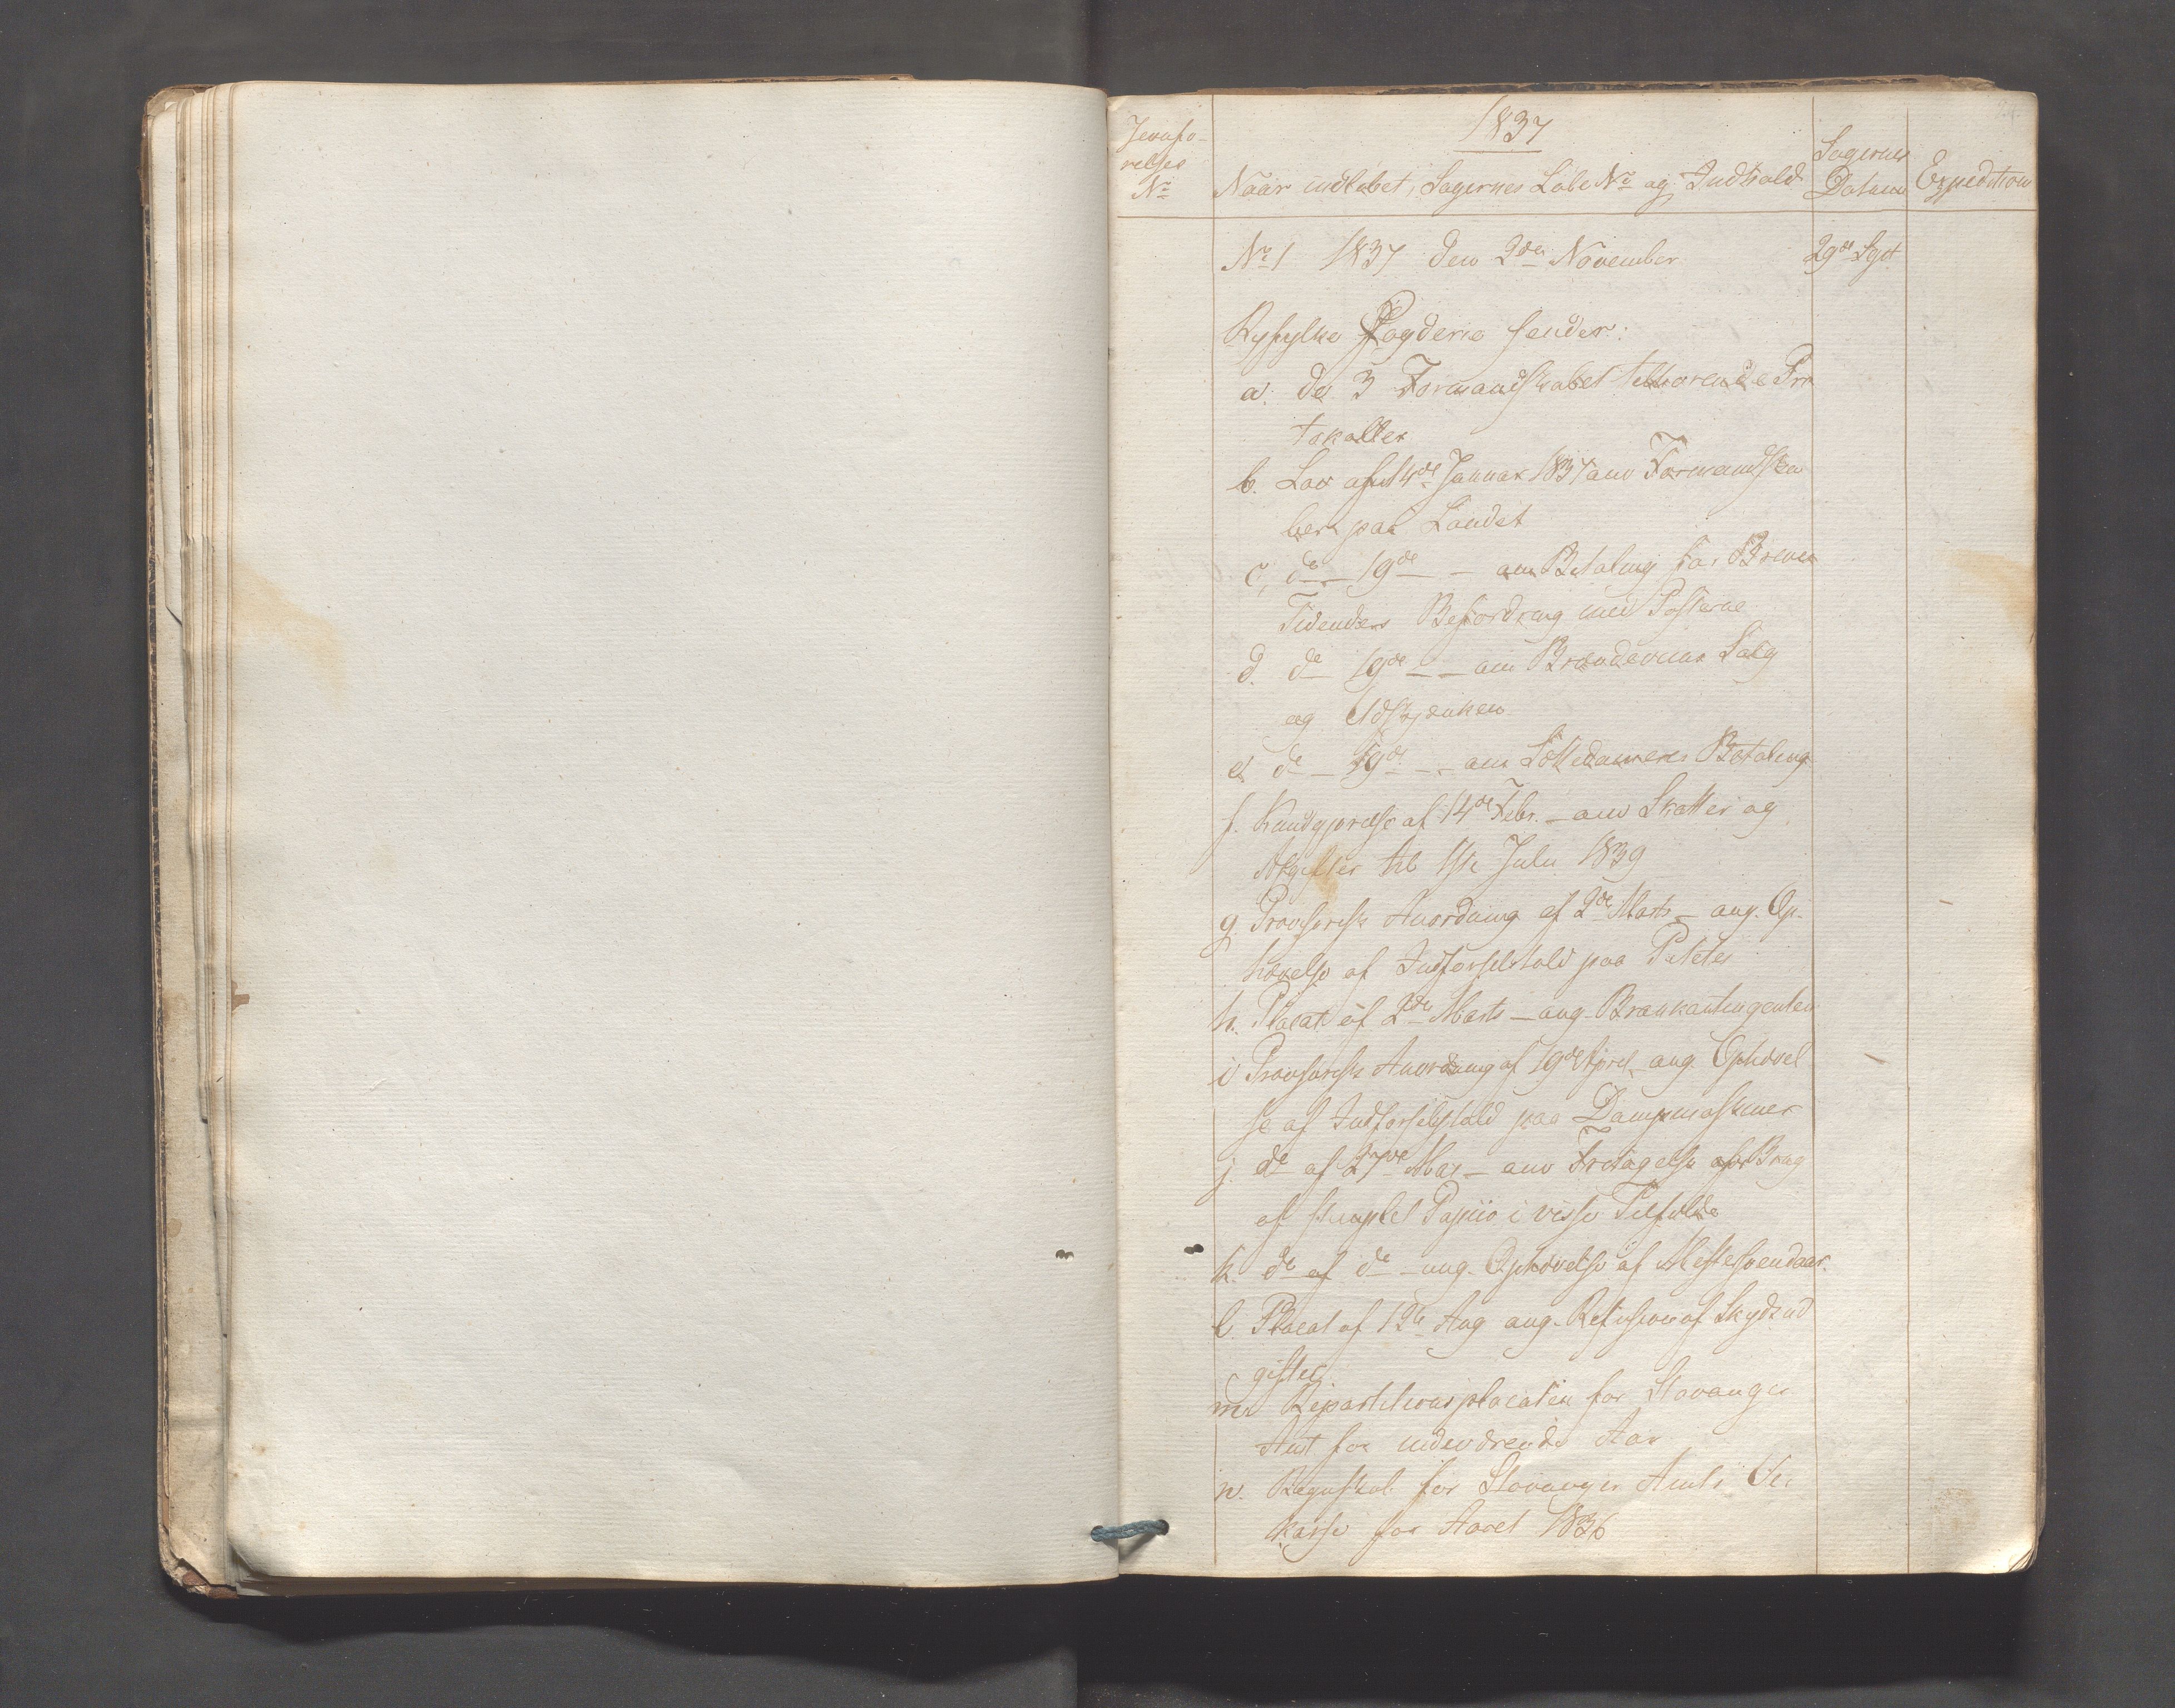 1837
Jevnfo-
relses
No
Naar indløbet, Sagernes Løbe No og Indhold
Sagernes
Datum
Expedition
No 1 1837 den 2den November
29de Sept
Ryfylke Fogderie sender:
a. de 3 Formandskabet tilhørende Pro
tokoller
b. Lov af 14de Januar 1837 om Formandska
ber paa Landet
c, do - 19de - - om Betaling for Breve
Tidenders Befordring med Posterne
d. do 19de - - om Brændeviins Salg
og Udskjenken
e. do - 19de - - om Betaling
f. Kundgjørelse af 14de Febr. - om Skatter og
Afgifter til 1ste Julii 1839
g. Provisorisk Anordning af 2den Marts - ang. Op-
hævelse af Indførselstold paa Poteter
h. Placat af 2den Marts - ang.
i Provisorisk Anordning af 19de April - ang. Ophævel
se af Indførselstold paa Dampmaskiner
j. do af 27de Mai - om Fritagelse for Brug
af stemplet Papiir i visse Tilfælde
k. do af do - ang. Ophævelse af
l. Placat af 12te Aug ang. Refusion af Skydsud
gifter
m. Repartitionsplacaten for Stavanger
Amt for indeværende Aar
n. Regnskab for Stavanger Amts
kasse for Aaret 1836